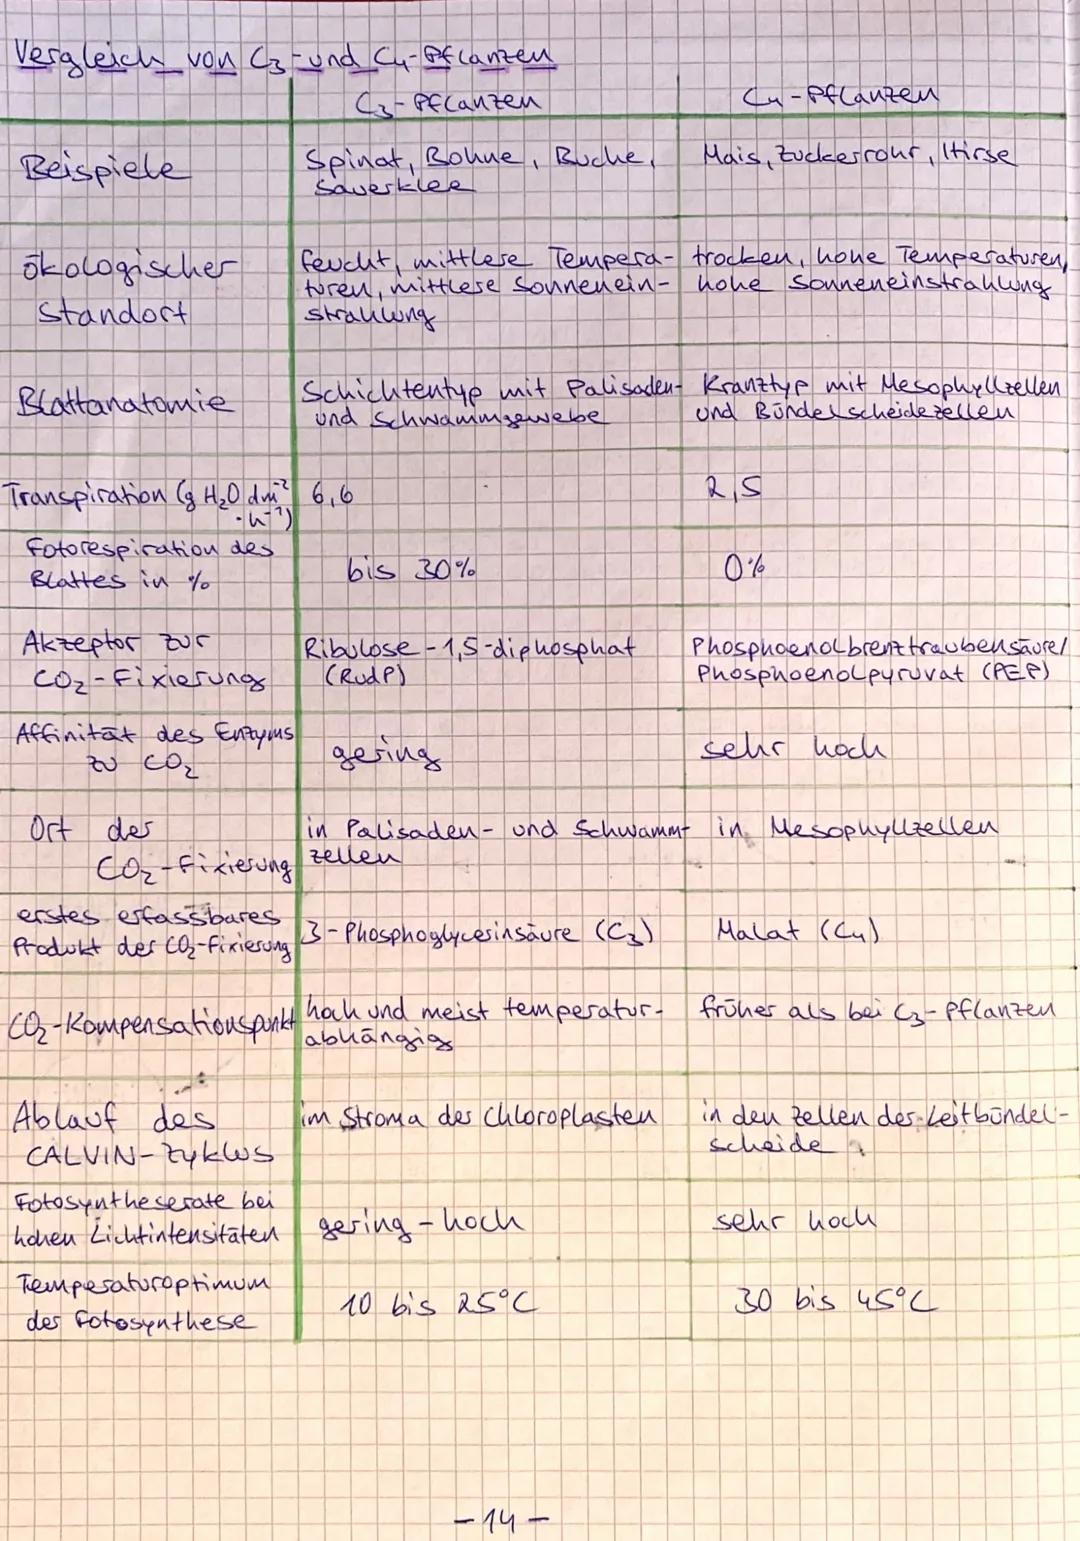 Vergleich von C₃- und C₄-Pflanzen
C₃-Pflanzen C₄-Pflanzen
Beispiele Spinat, Bohne, Buche, Mais, Zuckerrohr, Hirse
Sauerklee
ökologischer feucht, mittlere Tempera- trocken, hohe Temperaturen,
Standort turen, mittlere Sonnenein- hohe Sonneneinstrahlung
strahlung
Blattanatomie Schichtentyp mit Palisaden- Kranztyp mit Mesophyllzellen
und Schwammgewebe und Bündelscheidezellen
Transpiration (g H₂O dm⁻² 6,6 2,5
·h⁻¹)
Fotorespiration des
Blattes in % bis 30% 0%
Akzeptor zur Ribulose-1,5-diphosphat Phosphoenolbrenztraubensäure/
CO₂-Fixierung (RudP) Phosphoenolpyruvat (PEP)
Affinität des Enzyms
zu CO₂ gering sehr hoch
Ort der in Palisaden- und Schwamm- in Mesophyllzellen
CO₂-Fixierung zellen
erstes erfassbares
Produkt der CO₂-Fixierung 3-Phosphoglycerinsäure (C₃) Malat (C₄)
CO₂-Kompensationspunkt hoch und meist temperatur- früher als bei C₃-Pflanzen
abhängig
Ablauf des im Stroma der Chloroplasten in den Zellen der Leitbündel-
CALVIN-Zyklus scheide
Fotosyntheserate bei
hohen Lichtintensitäten gering - hoch sehr hoch
Temperaturoptimum
der Fotosynthese 10 bis 25°C 30 bis 45°C
-14-